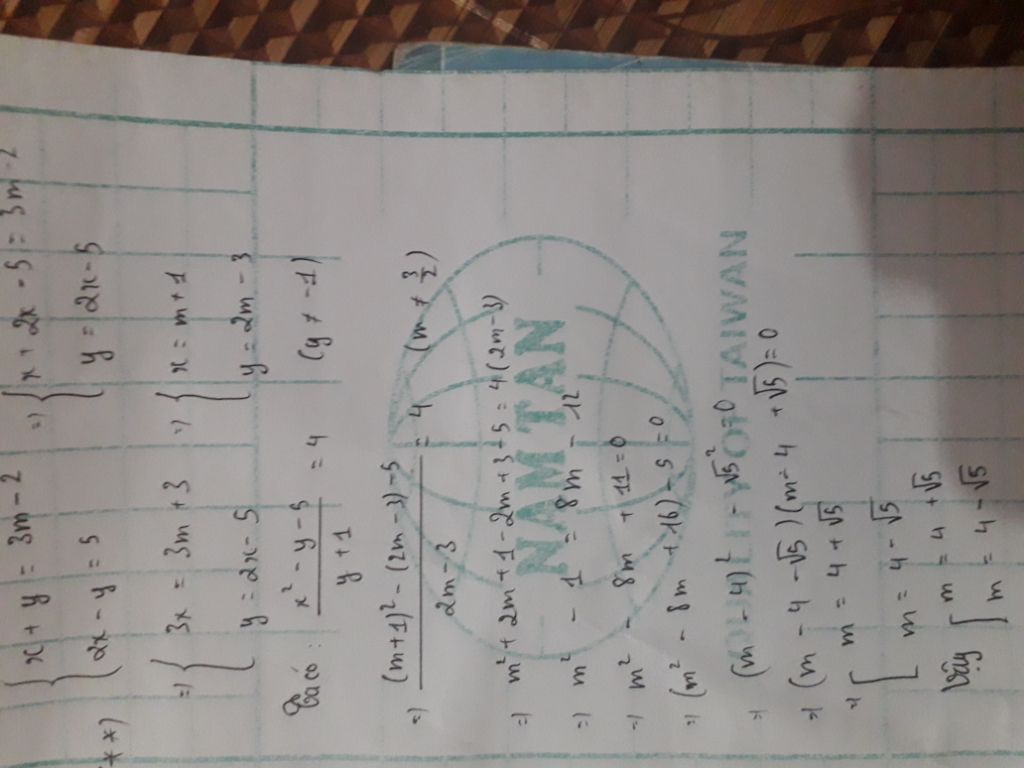 **)
{ x + y = 3m - 2
{ 2x - y = 5
=) { x + 2x - 5 = 3m - 2
{ y = 2x - 5
=) { 3x = 3m + 3
{ y = 2x - 5
=) { x = m + 1
{ y = 2m - 3
Ta có : (x² - y - 5)/(y + 1) = 4 (y ≠ -1)
=) ((m+1)² - (2m - 3) - 5)/(2m - 3) = 4 (m ≠ 3/2)
=) m² + 2m + 1 - 2m + 3 - 5 = 4(2m - 3)
=) m² - 1 = 8m - 12
=) m² - 8m + 11 = 0
=) (m² - 8m + 16) - 5 = 0
=) (m - 4)² - √5² = 0
=) (m - 4 - √5)(m - 4 + √5) = 0
=) [ m = 4 + √5
[ m = 4 - √5
Vậy [ m = 4 + √5
[ m = 4 - √5
NAM TAN
QUALITY OF TAIWAN